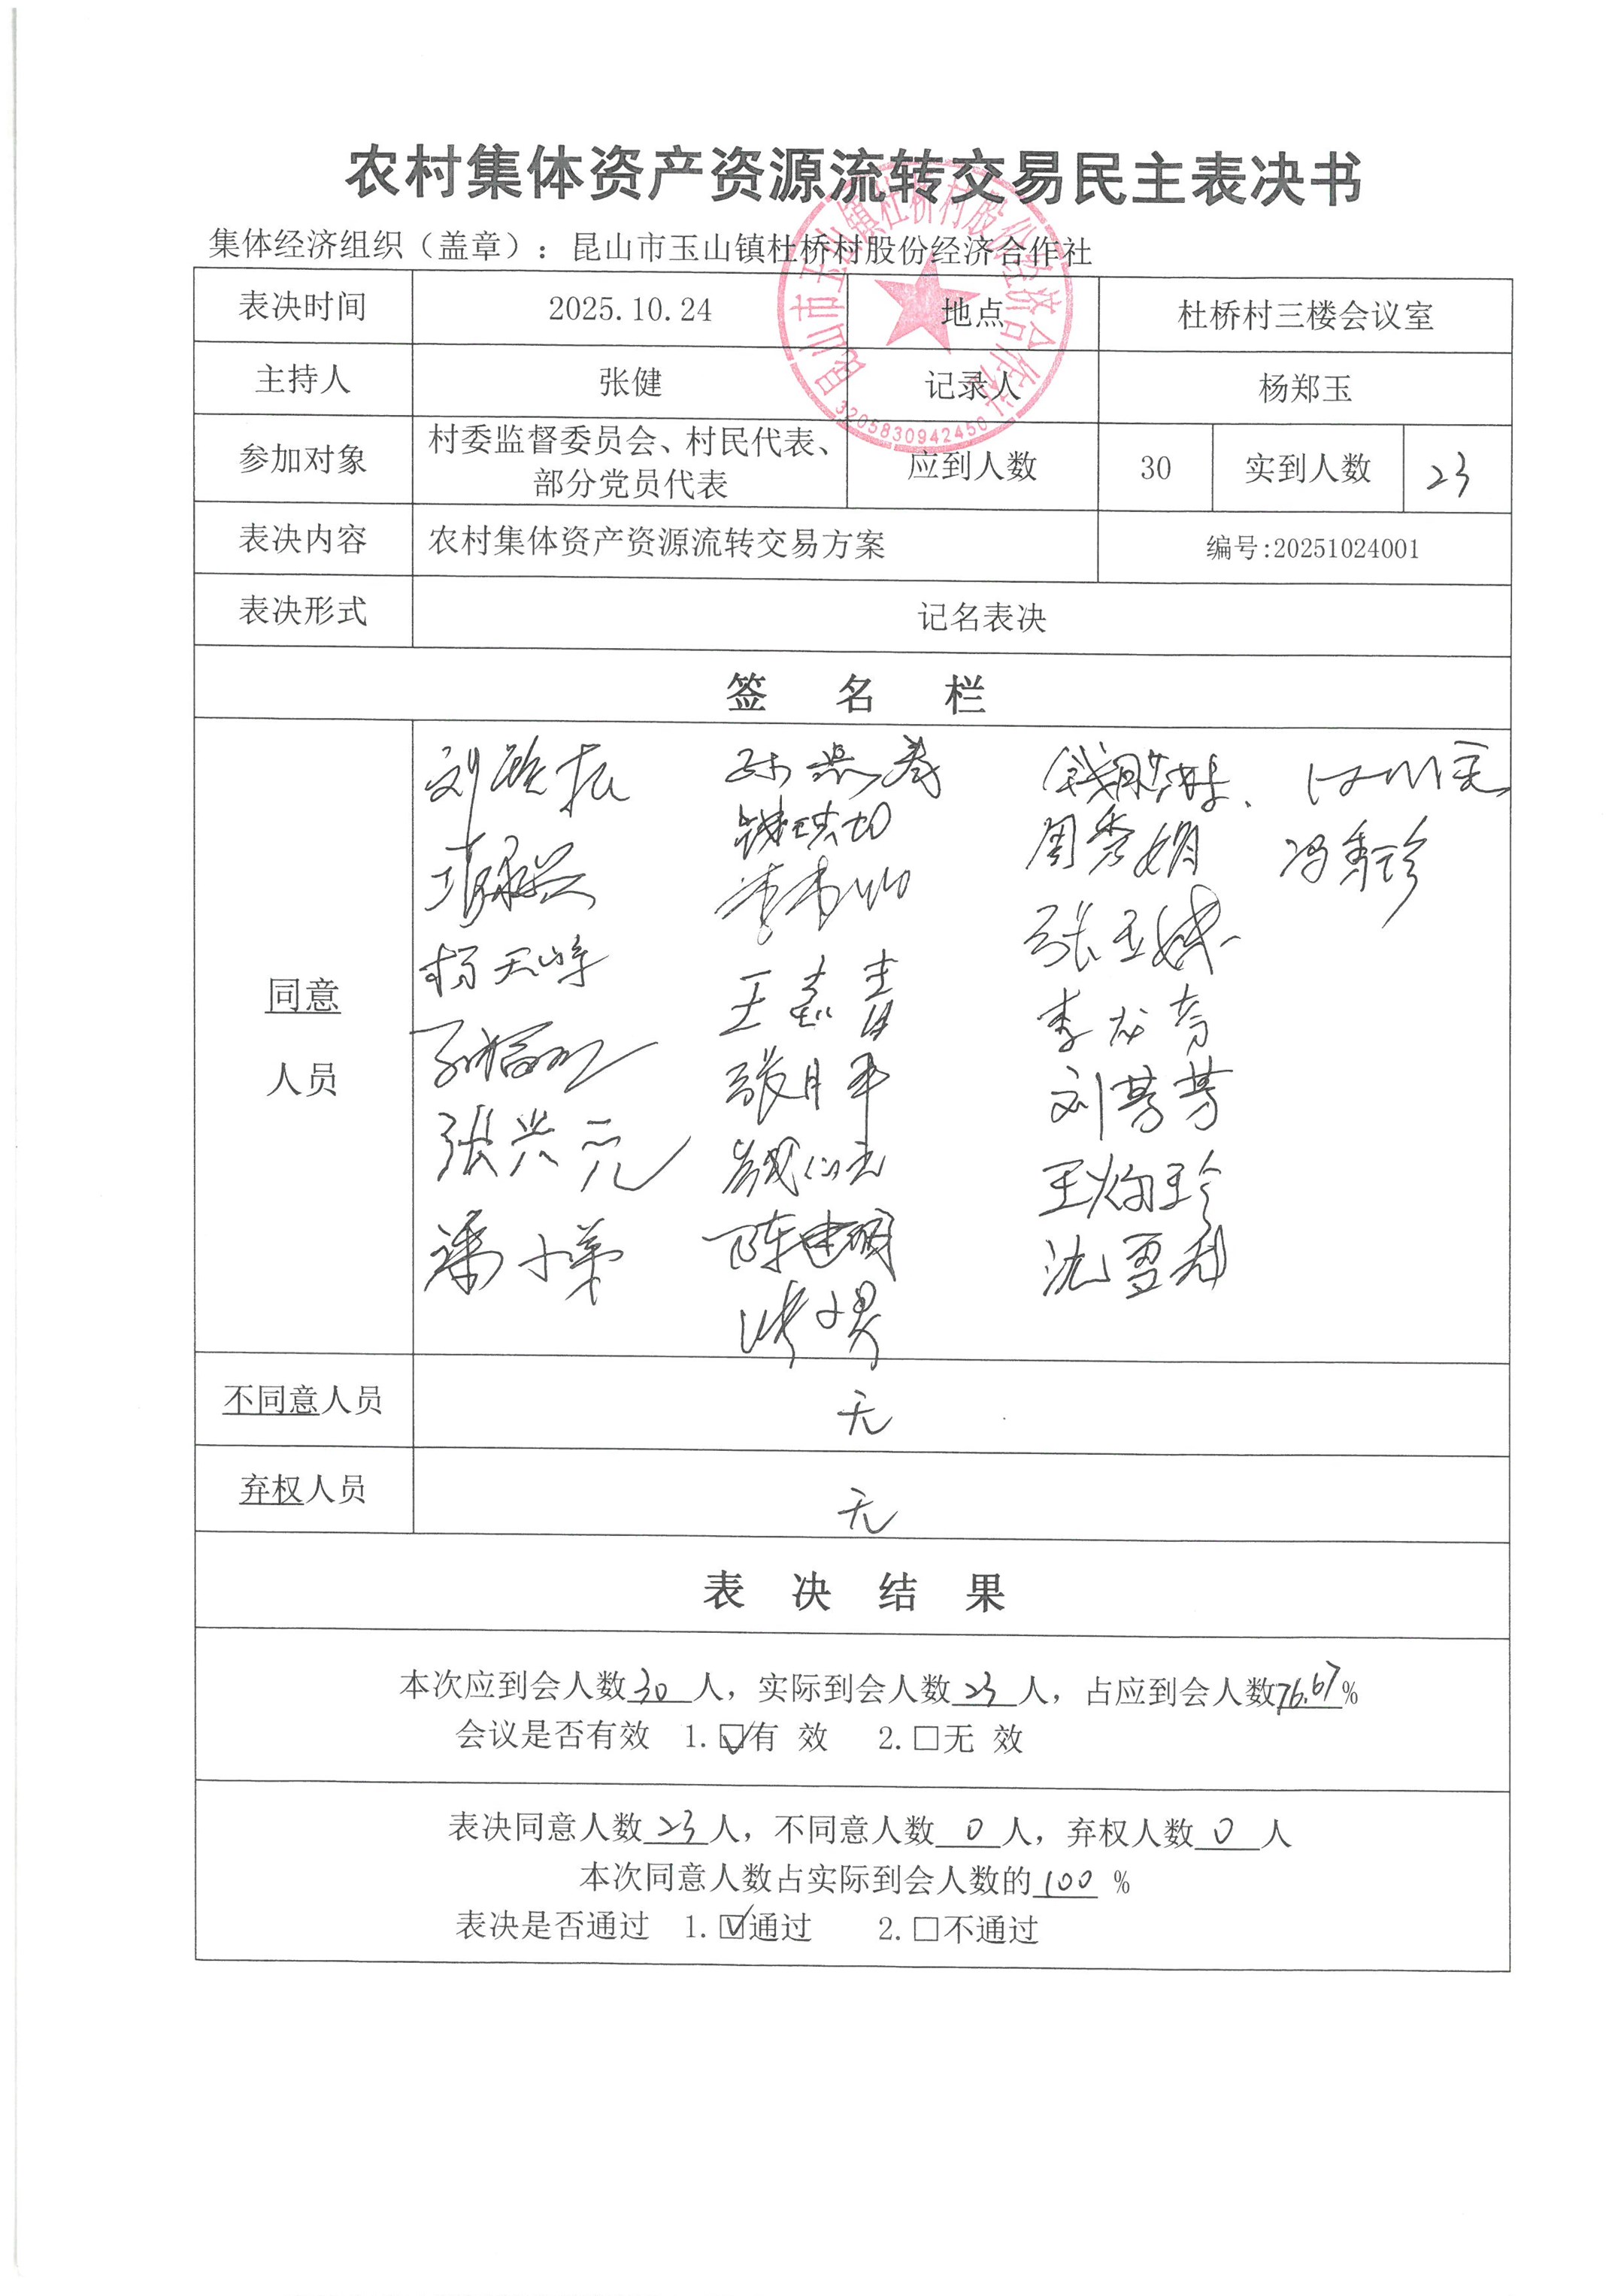 农村集体资产资源流转交易民主表决书
集体经济组织（盖章）：昆山市玉山镇杜桥村股份经济合作社
昆山市玉山镇杜桥村股份经济合作社
3205830942450
表决时间 2025.10.24 地点 杜桥村三楼会议室
主持人 张健 记录人 杨郑玉
参加对象 村委监督委员会、村民代表、
部分党员代表 应到人数 30 实到人数 23
表决内容 农村集体资产资源流转交易方案 编号:20251024001
表决形式 记名表决
签 名 栏
同意
人员
周秀娟
杨天峰
王嘉青 张玉娥
张月平
张兴元 刘芳芳
陈建明
潘小弟
不同意人员 无
弃权人员 无
表 决 结 果
本次应到会人数30人，实际到会人数23人，占应到会人数76.67%
会议是否有效 1.☑有 效 2.□无 效
表决同意人数23人，不同意人数0人，弃权人数0人
本次同意人数占实际到会人数的100 %
表决是否通过 1.☑通过 2.□不通过